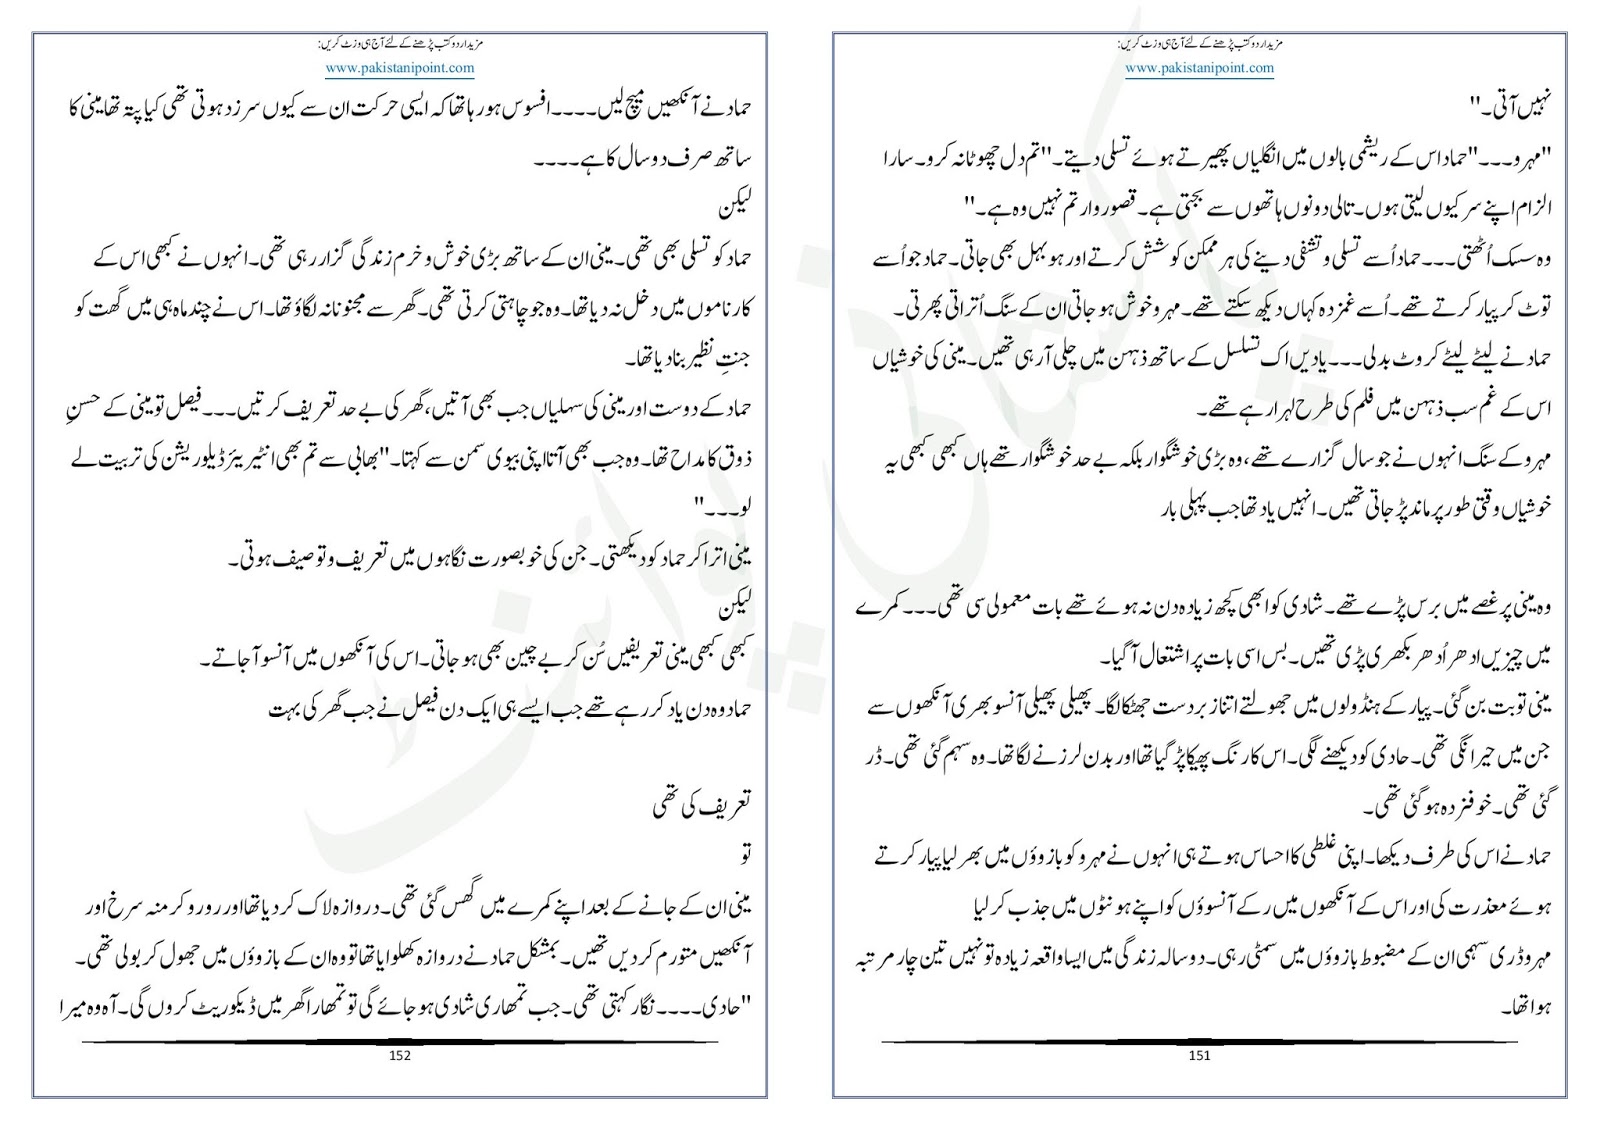 مزید اردو کتب پڑھنے کے لئے آج ہی وزٹ کریں:
www.pakistanipoint.com
نہیں آتی۔"
"مہرو۔۔۔" حماد اس کے ریشمی بالوں میں انگلیاں پھیرتے ہوئے تسلی دیتے۔ "تم دل چھوٹا نہ کرو۔ سارا
الزام اپنے سر کیوں لیتی ہوں۔ تالی دونوں ہاتھوں سے بجتی ہے۔ قصوروار تم نہیں وہ ہے۔"
وہ سسک اُٹھتی۔۔۔ حماد اُسے تسلی و تشفی دینے کی ہر ممکن کوشش کرتے اور ہو بہل بھی جاتی۔ حماد جو اُسے
ٹوٹ کر پیار کرتے تھے۔ اُسے غمزدہ کہاں دیکھ سکتے تھے۔ مہرو خوش ہو جاتی ان کے سنگ اُتراتی پھرتی۔
حماد نے لیٹے لیٹے کروٹ بدلی۔۔۔ یادیں اک تسلسل کے ساتھ ذہن میں چلی آ رہی تھیں۔ مینی کی خوشیاں
اس کے غم سب ذہن میں فلم کی طرح لہرا رہے تھے۔
مہرو کے سنگ انہوں نے جو سال گزارے تھے، وہ بڑی خوشگوار بلکہ بے حد خوشگوار تھے ہاں کبھی کبھی یہ
خوشیاں وقتی طور پر ماند پڑ جاتی تھیں۔ انہیں یاد تھا جب پہلی بار
وہ مینی پر غصے میں برس پڑے تھے۔ شادی کو ابھی کچھ زیادہ دن نہ ہوئے تھے بات معمولی سی تھی۔۔۔ کمرے
میں چیزیں ادھر اُدھر بکھری پڑی تھیں۔ بس اسی بات پر اشتعال آ گیا۔
مینی تو بت بن گئی۔ پیار کے ہنڈولوں میں جھولتے اتنا زبردست جھٹکا لگا۔ پھیلی پھیلی آنسو بھری آنکھوں سے
جن میں حیرانگی تھی۔ حادی کو دیکھنے لگی۔ اس کا رنگ پھیکا پڑ گیا تھا اور بدن لرزنے لگا تھا۔ وہ سہم گئی تھی۔ ڈر
گئی تھی۔ خوفزدہ ہو گئی تھی۔
حماد نے اس کی طرف دیکھا۔ اپنی غلطی کا احساس ہوتے ہی انہوں نے مہرو کو بازوؤں میں بھر لیا پیار کرتے
ہوئے معذرت کی اور اس کے آنکھوں میں رکے آنسوؤں کو اپنے ہونٹوں میں جذب کر لیا
مہرو ڈری سہمی ان کے مضبوط بازوؤں میں سمٹی رہی۔ دو سالہ زندگی میں ایسا واقعہ زیادہ تو نہیں تین چار مرتبہ
ہوا تھا۔
151
مزید اردو کتب پڑھنے کے لئے آج ہی وزٹ کریں:
www.pakistanipoint.com
حماد نے آنکھیں میچ لیں۔۔۔۔ افسوس ہو رہا تھا کہ ایسی حرکت ان سے کیوں سرزد ہوتی تھی کیا پتہ تھا مینی کا
ساتھ صرف دو سال کا ہے۔۔۔۔
لیکن
حماد کو تسلی بھی تھی۔ مینی ان کے ساتھ بڑی خوش و خرم زندگی گزار رہی تھی۔ انہوں نے کبھی اس کے
کارناموں میں دخل نہ دیا تھا۔ وہ جو چاہتی کرتی تھی۔ گھر سے مجنونانہ لگاؤ تھا۔ اس نے چند ماہ ہی میں گھت کو
جنتِ نظیر بنا دیا تھا۔
حماد کے دوست اور مینی کی سہلیاں جب بھی آتیں، گھر کی بے حد تعریف کرتیں۔۔۔ فیصل تو مینی کے حسنِ
ذوق کا مداح تھا۔ وہ جب بھی آتا اپنی بیوی سمن سے کہتا۔ "بھابی سے تم بھی انٹیریئر ڈیلوریشن کی تربیت لے
لو۔۔۔"
مینی اترا کر حماد کو دیکھتی۔ جن کی خوبصورت نگاہوں میں تعریف و توصیف ہوتی۔
لیکن
کبھی کبھی مینی تعریفیں سُن کر بے چین بھی ہو جاتی۔ اس کی آنکھوں میں آنسو آ جاتے۔
حماد وہ دن یاد کر رہے تھے جب ایسے ہی ایک دن فیصل نے جب گھر کی بہت
تعریف کی تھی
تو
مینی ان کے جانے کے بعد اپنے کمرے میں گھس گئی تھی۔ دروازہ لاک کر دیا تھا اور رو رو کر منہ سرخ اور
آنکھیں متورم کر دیں تھیں۔ بمشکل حماد نے دروازہ کھلوایا تھا تو وہ ان کے بازوؤں میں جھول کر بولی تھی۔
"حادی۔۔۔۔ نگار کہتی تھی۔ جب تمھاری شادی ہو جائے گی تو تمھارا گھر میں ڈیکوریٹ کروں گی۔ آہ وہ میرا
152
پاکستانی پوائنٹ